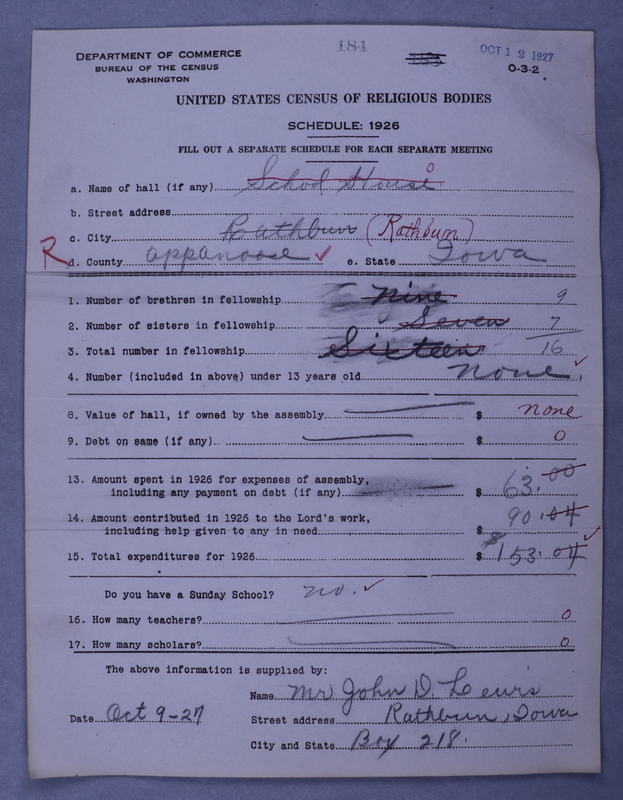 184
OCT 12 1927
DEPARTMENT OF COMMERCE
BUREAU OF THE CENSUS
WASHINGTON
O-3-2
UNITED STATES CENSUS OF RELIGIOUS BODIES
SCHEDULE: 1926
FILL OUT A SEPARATE SCHEDULE FOR EACH SEPARATE MEETING
a. Name of hall (if any) School House 0
b. Street address
c. City Rathbun (Rathbun)
R d. County Appanoose ✓ e. State Iowa
1. Number of brethren in fellowship Nine 9
2. Number of sisters in fellowship Seven 7
3. Total number in fellowship Sixteen 16
4. Number (included in above) under 13 years old none. ✓
8. Value of hall, if owned by the assembly $ none
9. Debt on same (if any) $ 0
13. Amount spent in 1926 for expenses of assembly,
including any payment on debt (if any) $ 63.00
14. Amount contributed in 1926 to the Lord's work,
including help given to any in need $ 90.04
15. Total expenditures for 1926 $ $153.04 ✓
Do you have a Sunday School? no. ✓
16. How many teachers? 0
17. How many scholars? 0
The above information is supplied by:
Name Mr John D. Lewis
Date Oct 9-27 Street address Rathbun, Iowa
City and State Box 218.